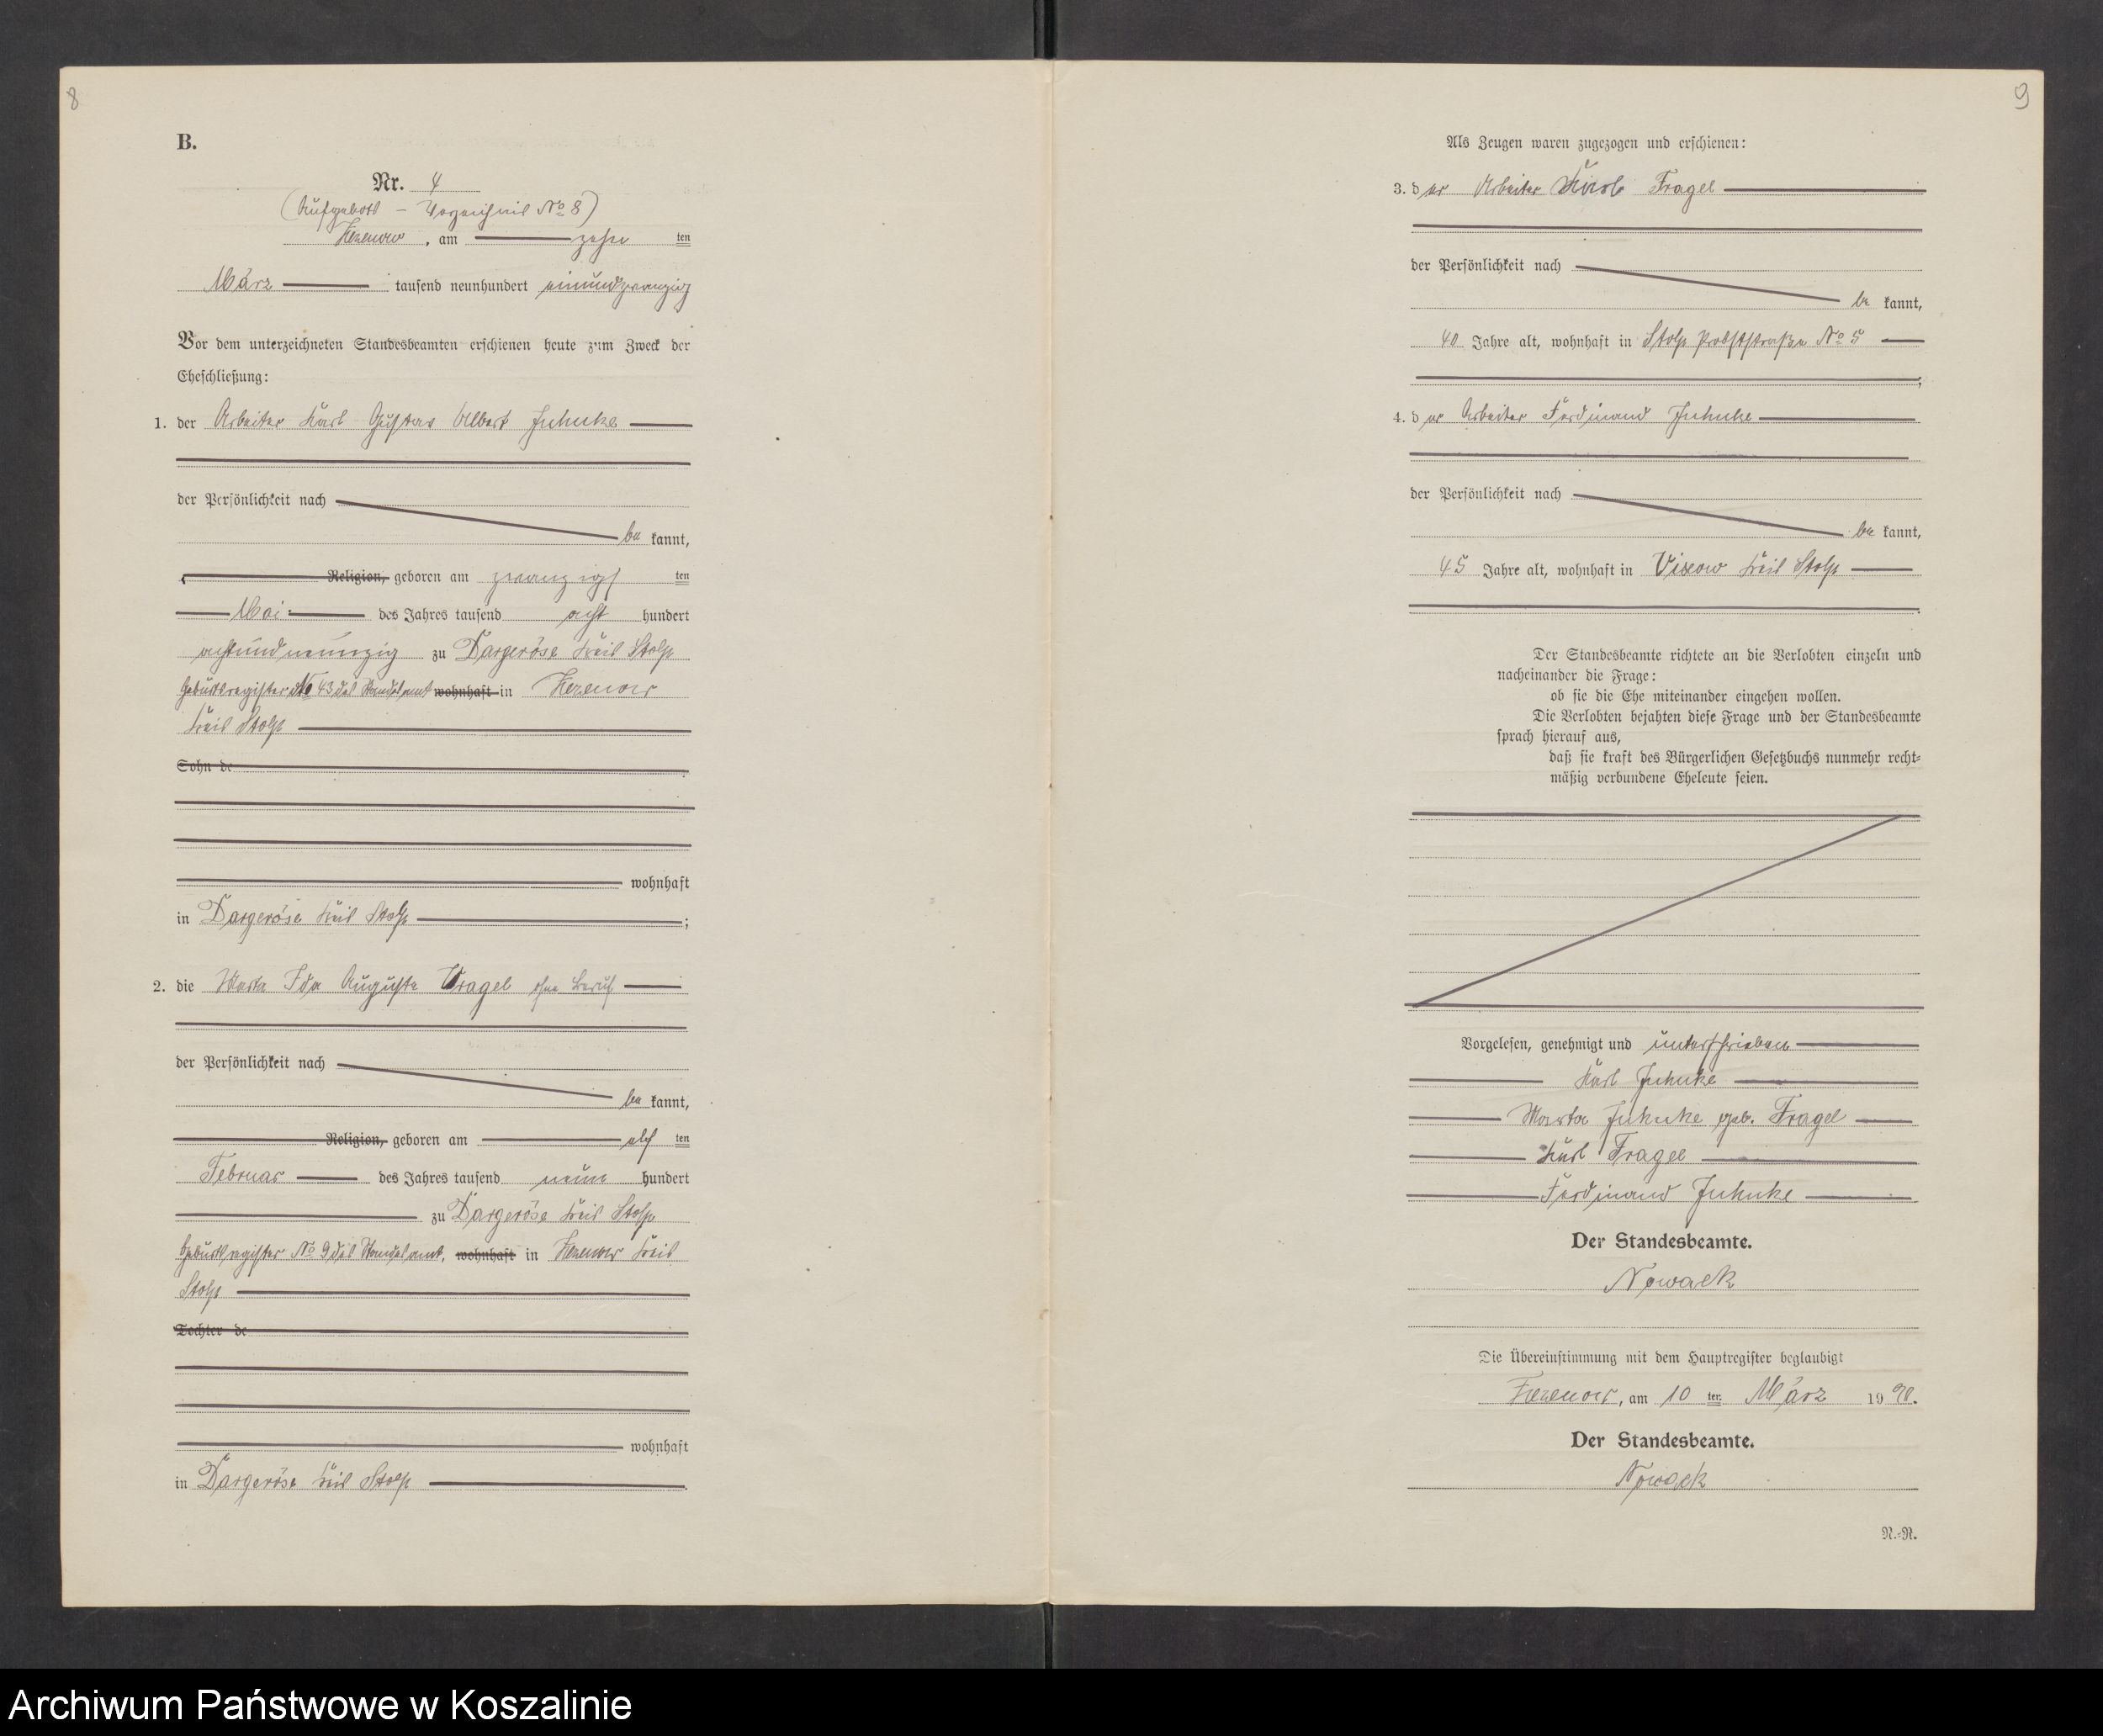 8
B.
Nr. 4
(Aufgebots - Verzeichnis No 8)
, am zehn ten
März tausend neunhundert einundzwanzig
Vor dem unterzeichneten Standesbeamten erschienen heute zum Zweck der
Eheschließung:
1. der Arbeiter Karl Gustav Albert Juhnke
der Persönlichkeit nach
be kannt,
Religion, geboren am zwanzigs ten
Mai des Jahres tausend acht hundert
achtundneunzig zu Dargeröse Kreis Stolp
Geburtsregister No 43 des Standesamt wohnhaft in
Kreis Stolp
Sohn de
wohnhaft
in Dargeröse Kreis Stolp ;
2. die Marta Ida Auguste Fragel ohne Beruf
der Persönlichkeit nach
be kannt,
Religion, geboren am elf ten
Februar des Jahres tausend neun hundert
zu Dargeröse Kreis Stolp
Geburtsregister No 9 des Standesamt, wohnhaft in Kreis
Stolp
Tochter de
wohnhaft
in Dargeröse Kreis Stolp
9
Als Zeugen waren zugezogen und erschienen:
3. d er Arbeiter Karl Fragel
der Persönlichkeit nach
be kannt,
40 Jahre alt, wohnhaft in Stolp Probststraße No 5
;
4. d er Arbeiter Ferdinand Juhnke
der Persönlichkeit nach
be kannt,
45 Jahre alt, wohnhaft in Vixow Kreis Stolp
.
Der Standesbeamte richtete an die Verlobten einzeln und
nacheinander die Frage:
ob sie die Ehe miteinander eingehen wollen.
Die Verlobten bejahten diese Frage und der Standesbeamte
sprach hierauf aus,
daß sie kraft des Bürgerlichen Gesetzbuchs nunmehr recht-
mäßig verbundene Eheleute seien.
Vorgelesen, genehmigt und unterschrieben
Karl Juhnke
Marta Juhnke geb. Fragel
Karl Fragel
Ferdinand Juhnke
Der Standesbeamte.
Nowack
Die Übereinstimmung mit dem Hauptregister beglaubigt
, am 10 ten März 19
Der Standesbeamte.
Nowack
N.-R.
Archiwum Państwowe w Koszalinie